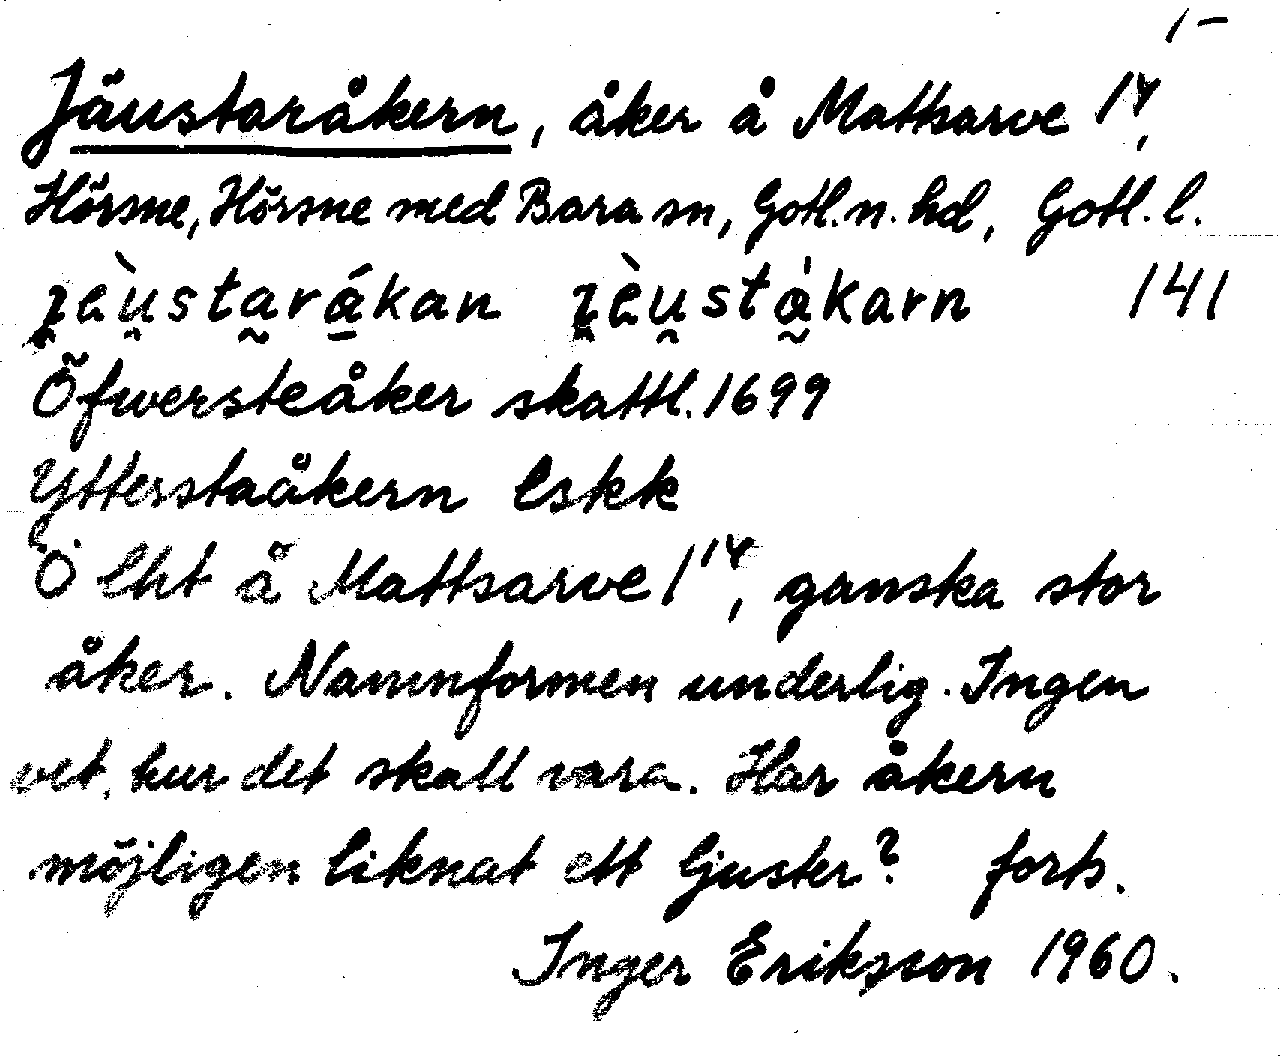 1-
Jäustaråkern, åker å Mattsarve 1 14,
Hörsne, Hörsne med Bara sn, Gotl. n. hd, Gotl. l.
141
Öfwersteåker skattl. 1699
Ytterstaåkern Eskk
Ö lht å Mattsarve 1 14, ganska stor
åker. Namnformen underlig. Ingen
vet, hur det skall vara. Har åkern
möjligen liknat ett ljuster? forts.
Inger Eriksson 1960.